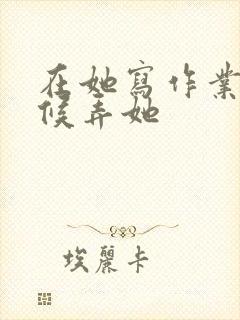 在她寫作業
候弄她
埃麗卡